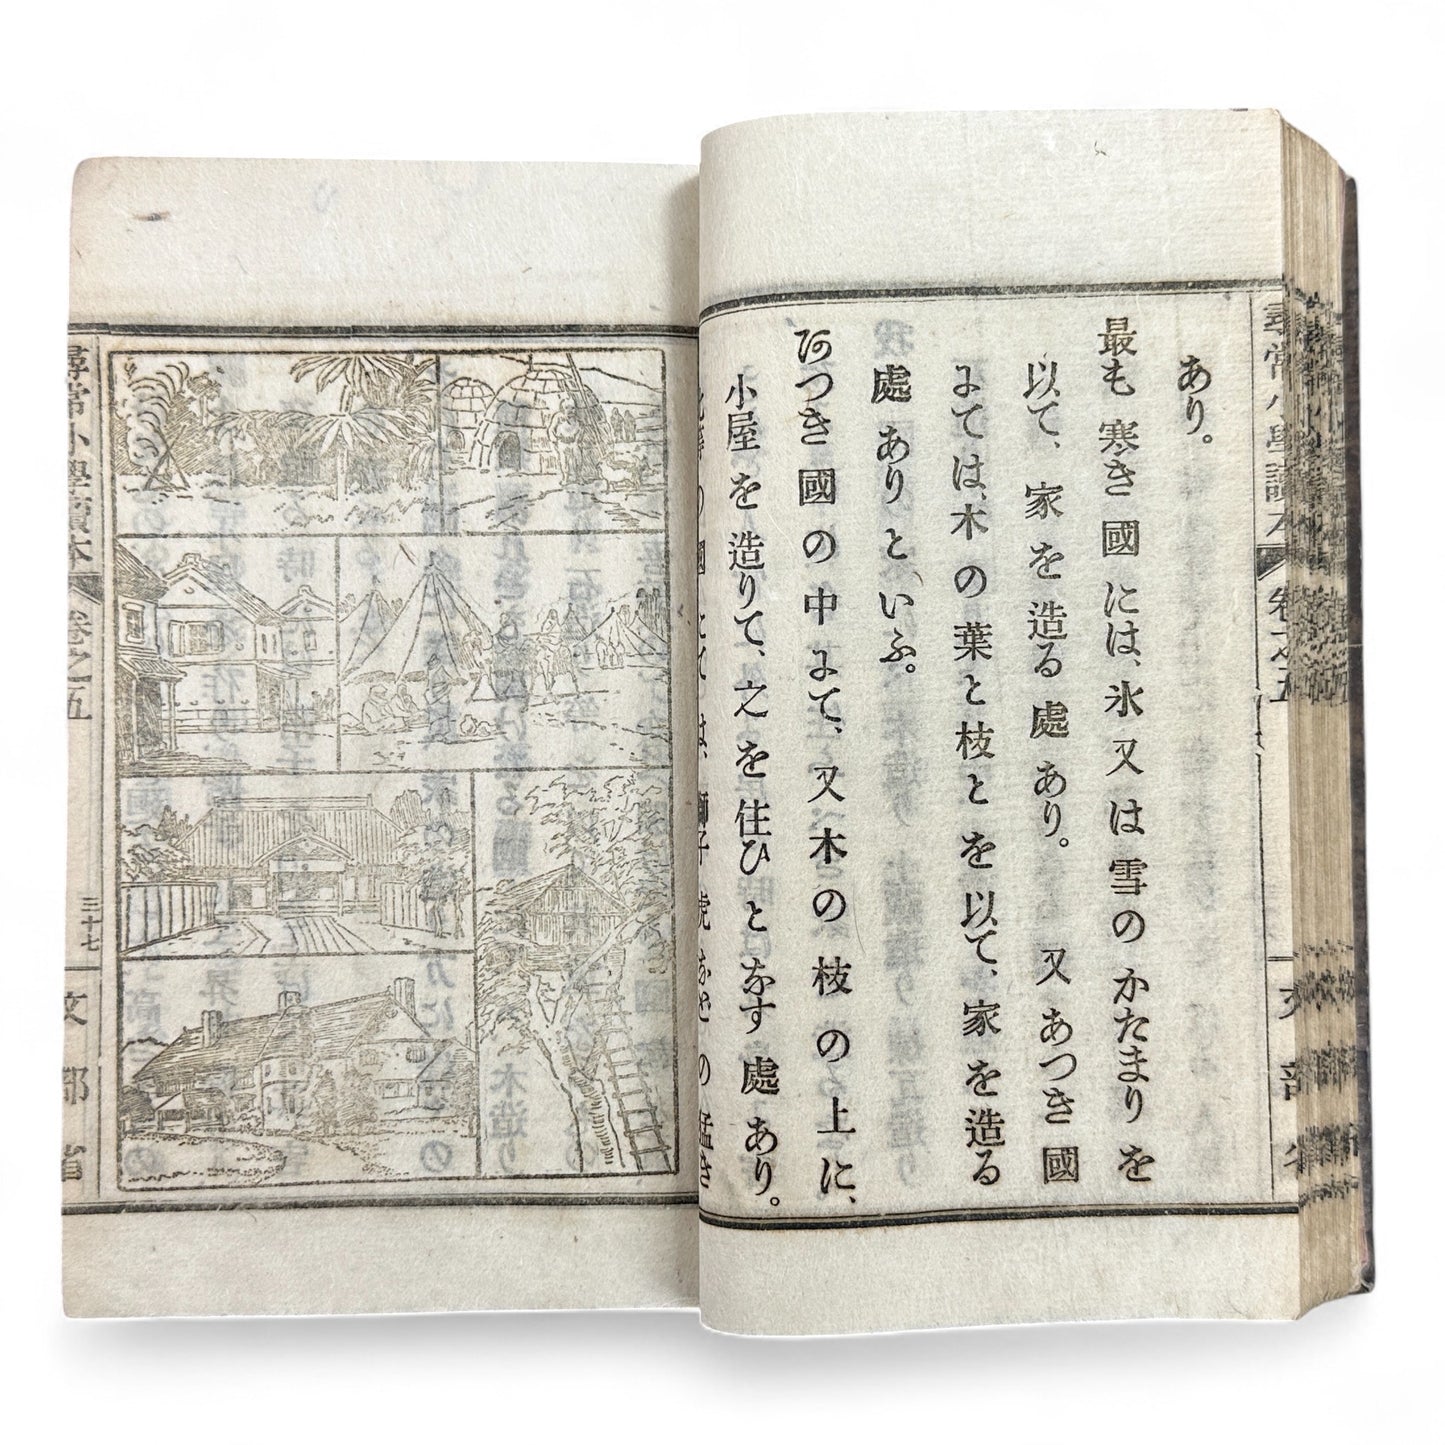 あり。
最も寒き國には、氷又は雪のかたまりを
以て、家を造る處あり。又あつき國
にては、木の葉と枝とを以て、家を造る
處ありといふ。
あつき國の中にて、又木の枝の上に、
小屋を造りて、之を住ひとなす處あり。
此等の國にては、獅子虎などの猛き
尋常小學讀本
卷之五
三十七
文部省